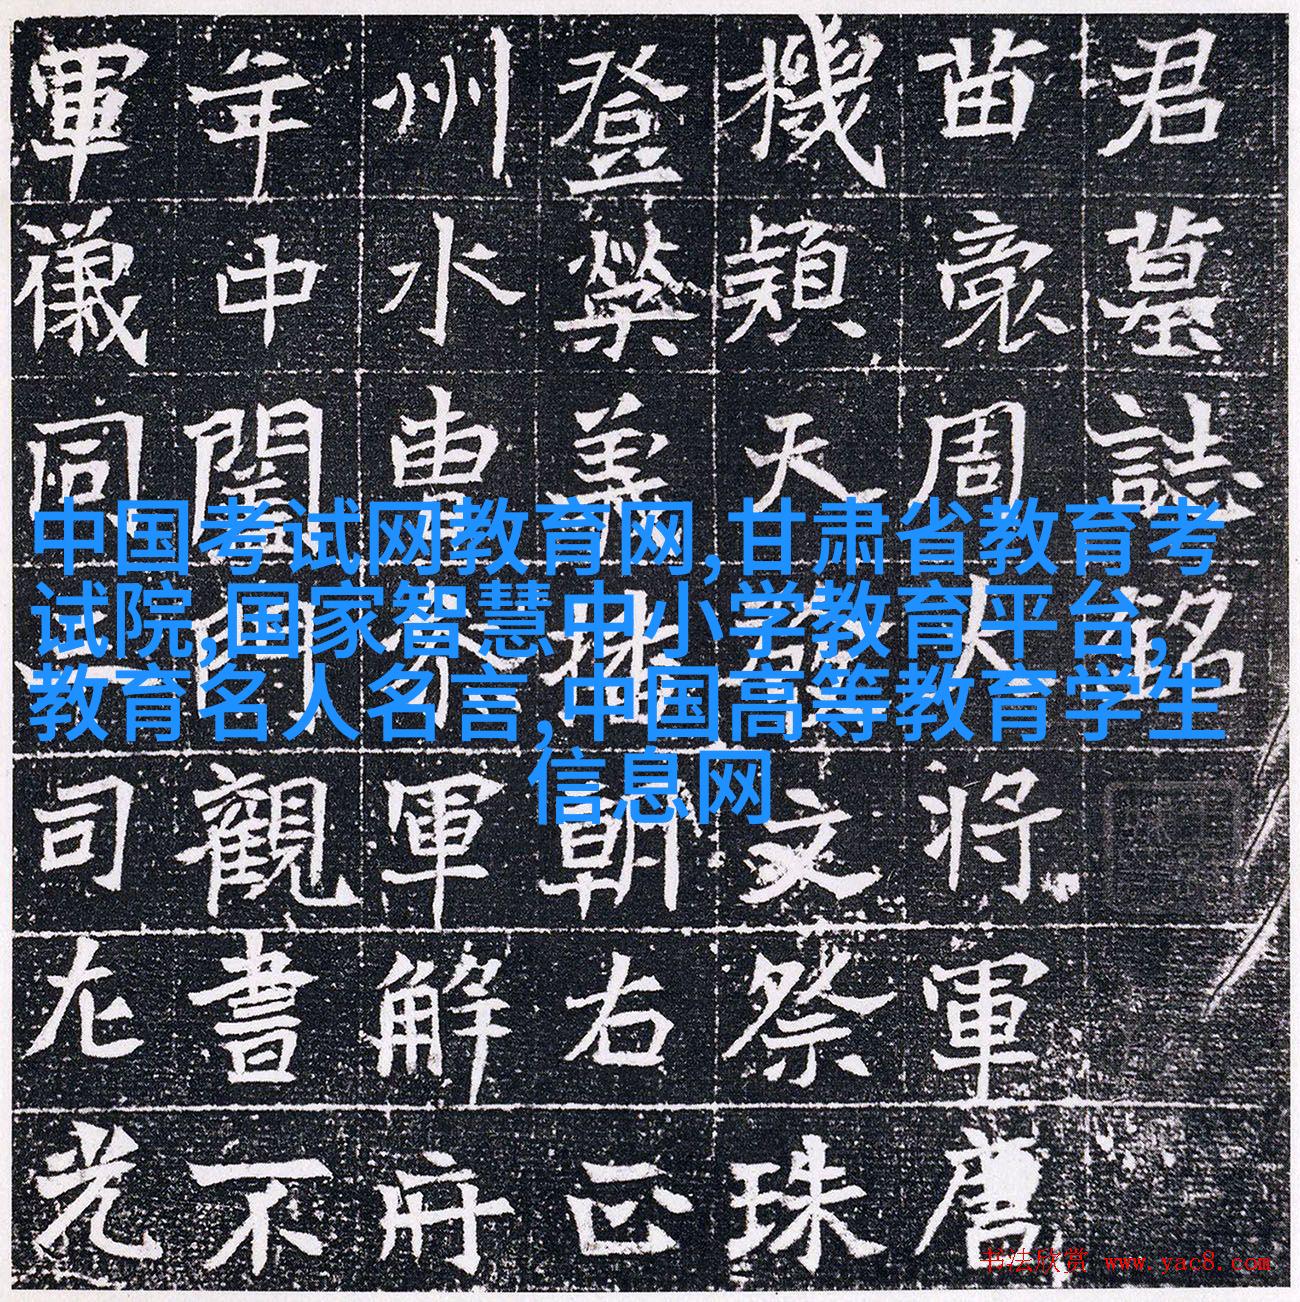 中国考试网教育网,甘肃省教育考
试院,国家智慧中小学教育平台,
教育名人名言,中国高等教育学生
信息网
君墓誌銘
苗裔周大将軍唐
機穎天發文祭珠
登榮美朝右正
州水曹參軍解府
年中閨門觀書不
軍儀同三司左光
书法欣赏 www.yac8.com